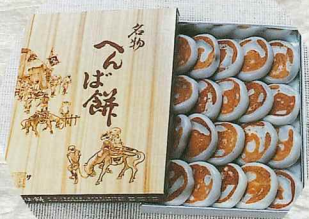 名物
へんば餅